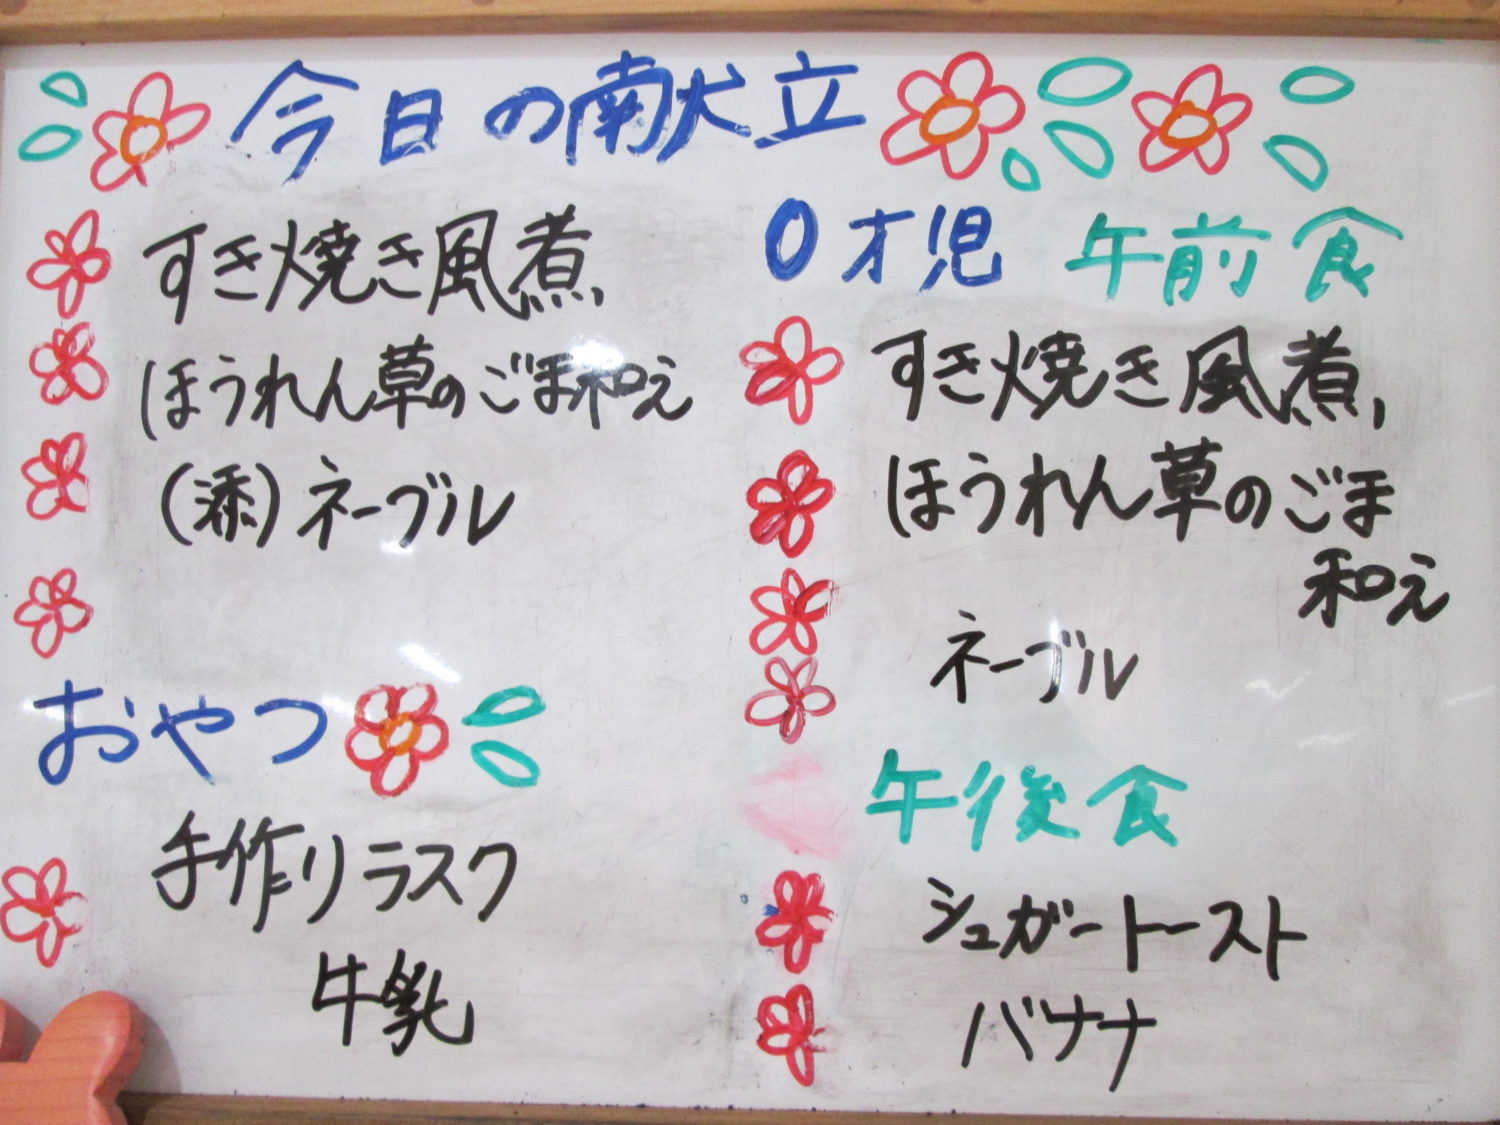 今日の献立
すき焼き風煮
ほうれん草のごま和え
(添)ネーブル
おやつ
手作りラスク
牛乳
0才児 午前食
すき焼き風煮
ほうれん草のごま
和え
ネーブル
午後食
シュガートースト
バナナ